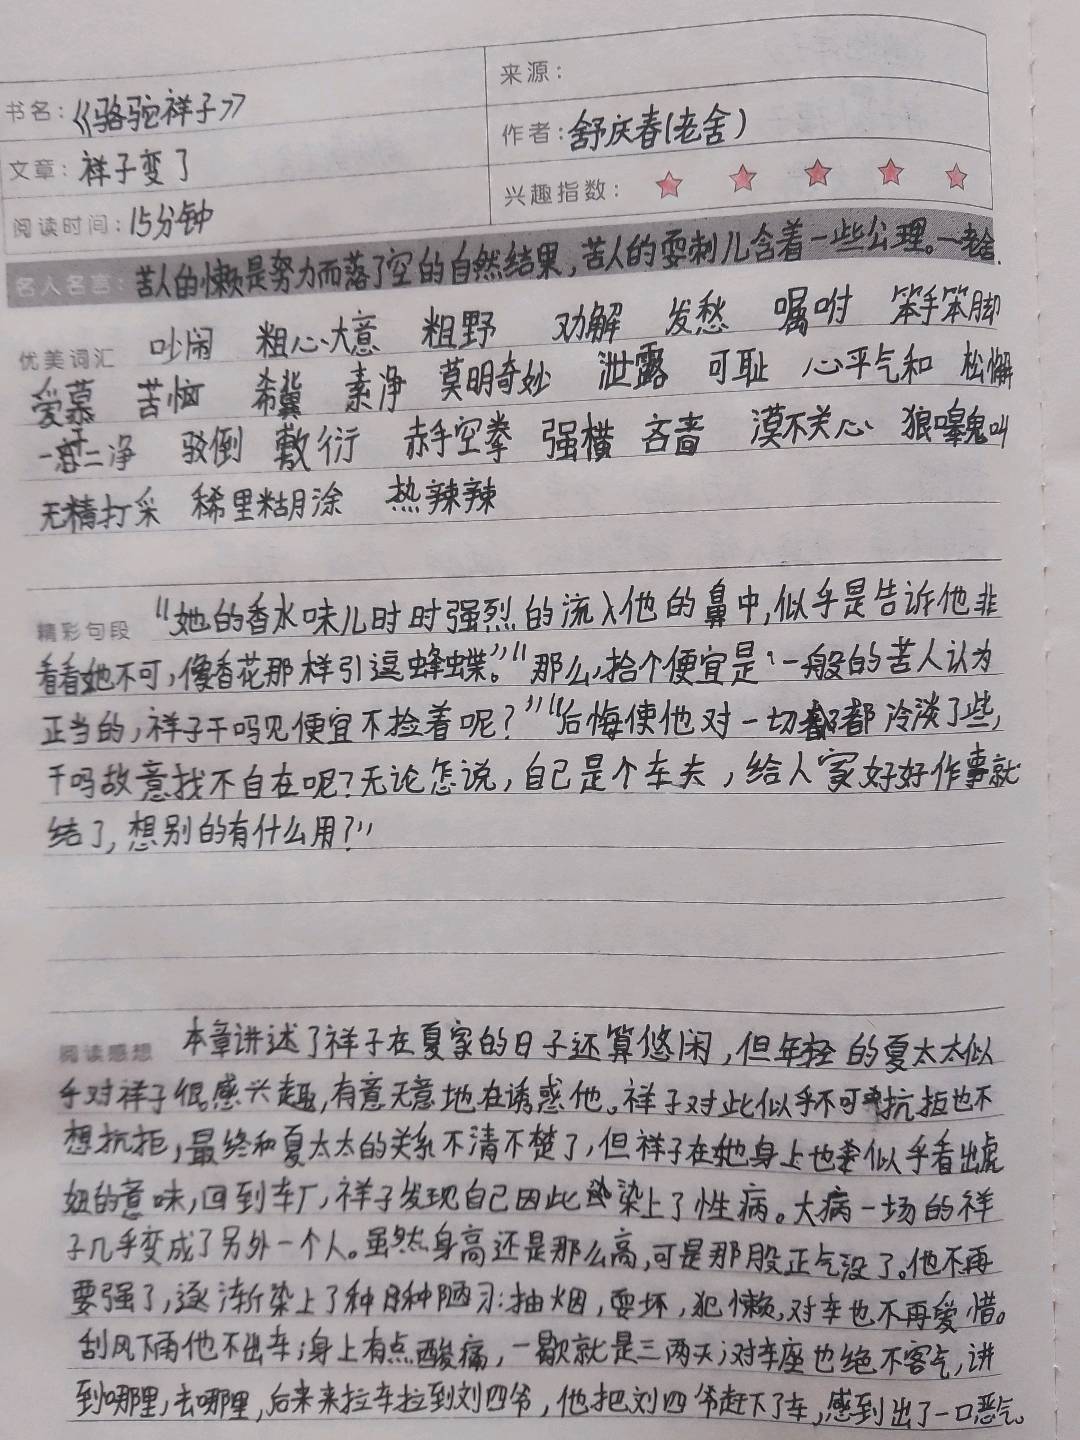 书名:《骆驼祥子》
来源:
作者:舒庆春(老舍)
文章:祥子变了
兴趣指数:
阅读时间:15分钟
名人名言:苦人的懒是努力而落了空的自然结果,苦人的耍刺儿含着一些公理。—老舍.
优美词汇 吵闹 粗心大意 粗野 劝解 发愁 嘱咐 笨手笨脚
爱慕 苦恼 希冀 素净 莫明奇妙 泄露 可耻 心平气和 松懈
一干二净 驳倒 敷衍 赤手空拳 强横 吝啬 漠不关心 狼嗥鬼叫
无精打采 稀里糊涂 热辣辣
精彩句段 “她的香水味儿时时强烈的流入他的鼻中,似乎是告诉他非
看看她不可,像香花那样引逗蜂蝶。”“那么,拾个便宜是一般的苦人认为
正当的,祥子干吗见便宜不捡着呢?”“后悔使他对一切都冷淡了些,
干吗故意找不自在呢?无论怎说,自己是个车夫,给人家好好作事就
结了,想别的有什么用?”
阅读感想 本章讲述了祥子在夏家的日子还算悠闲,但年轻的夏太太似
乎对祥子很感兴趣,有意无意地在诱惑他。祥子对此似乎不可抗拒也不
想抗拒,最终和夏太太的关系不清不楚了,但祥子在她身上也似乎看出虎
妞的意味,回到车厂,祥子发现自己因此染上了性病。大病一场的祥
子几乎变成了另外一个人。虽然身高还是那么高,可是那股正气没了。他不再
要强了,逐渐染上了种种陋习:抽烟,耍坏,犯懒,对车也不再爱惜。
刮风下雨他不出车;身上有点酸痛,一歇就是三两天;对车座也绝不客气,讲
到哪里,去哪里,后来来拉车拉到刘四爷,他把刘四爷赶下了车,感到出了一口恶气。